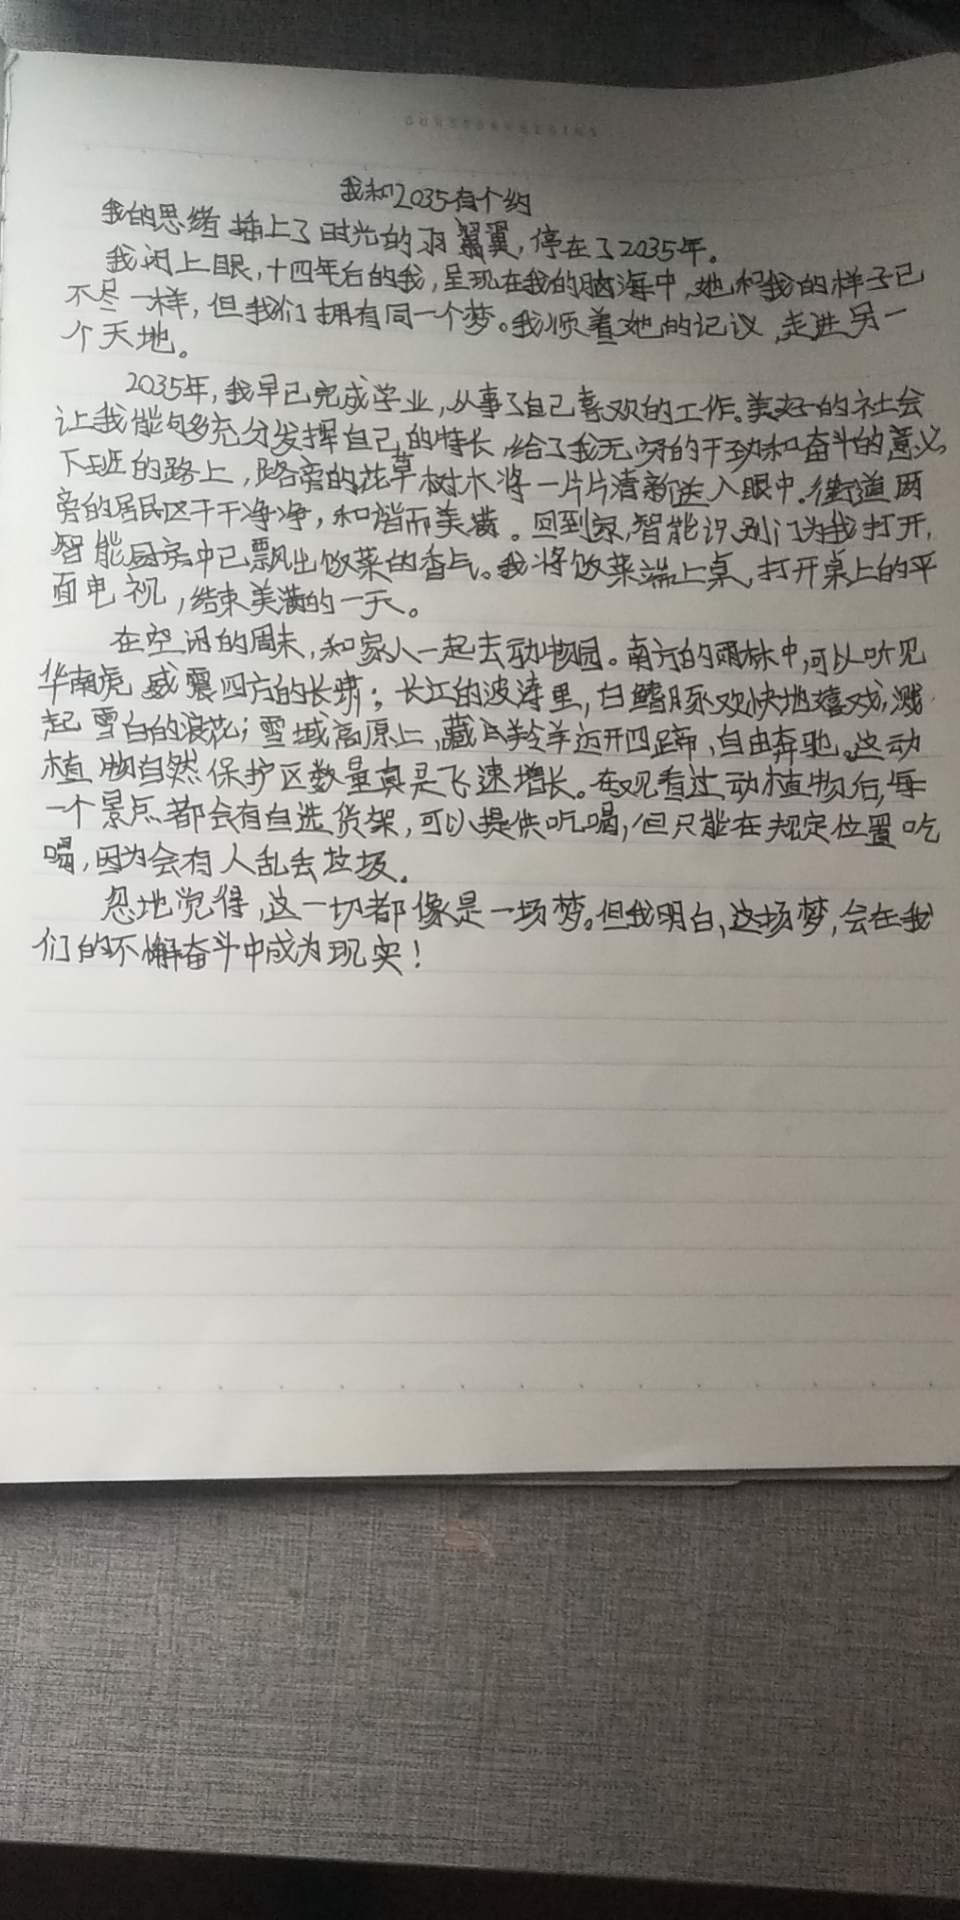 我和2035有个约
我的思绪插上了时光的羽翼翼,停在了2035年。
我闭上眼,十四年后的我,呈现在我的脑海中,她和我的样子已
不尽一样,但我们拥有同一个梦。我顺着她的记议,走进另一
个天地。
2035年,我早已完成学业,从事了自己喜欢的工作。美好的社会
让我能够充分发挥自己的特长,给了我无穷的干劲和奋斗的意义。
下班的路上,路旁的花草树木将一片片清新送入眼中。街道两
旁的居民区干干净净,和谐而美满。回到家,智能识别门为我打开,
智能厨房中已飘出饭菜的香气。我将饭菜端上桌,打开桌上的平
面电视,结束美满的一天。
在空闲的周末,和家人一起去动物园。南方的雨林中,可以听见
华南虎威震四方的长啸;长江的波涛里,白鳍豚欢快地嬉戏,溅
起雪白的浪花;雪域高原上,藏羚羊迈开四蹄,自由奔驰。这动
植物自然保护区数量真是飞速增长。在观看过动植物后,每
一个景点都会有自选货架,可以提供吃喝,但只能在规定位置吃
喝,因为会有人乱丢垃圾。
忽地觉得,这一切都像是一场梦。但我明白,这场梦,会在我
们的不懈奋斗中成为现实!